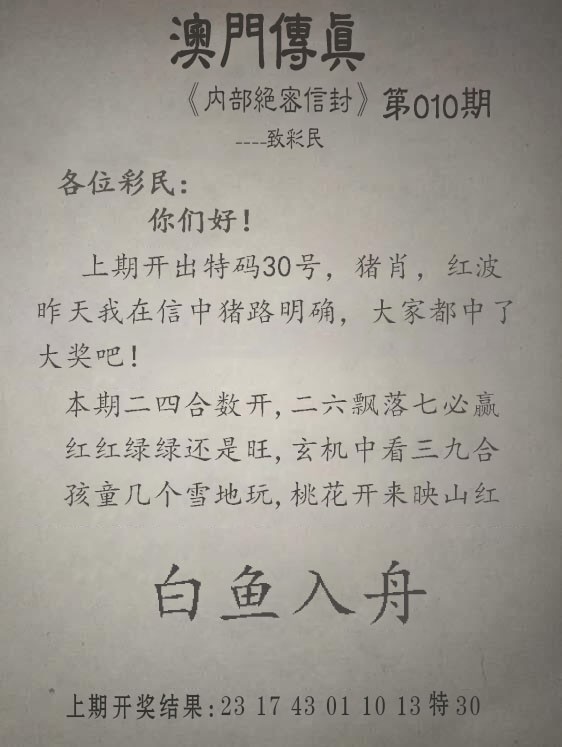 澳門傳真
《内部絕密信封》第010期
----致彩民
各位彩民：
你们好！
上期开出特码30号，猪肖，红波
昨天我在信中猪路明确，大家都中了
大奖吧！
本期二四合数开，二六飘落七必赢
红红绿绿还是旺，玄机中看三九合
孩童几个雪地玩，桃花开来映山红
白鱼入舟
上期开奖结果：23 17 43 01 10 13特30